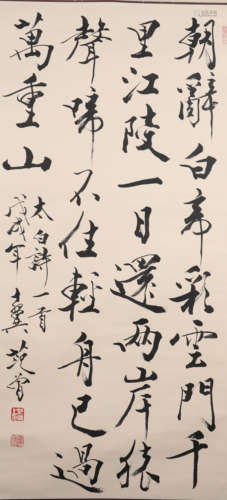 朝辭白帝彩雲間千
里江陵一日還两岸猿
聲啼不住輕舟已過
萬重山
太白詩一首
戊戌年十翼范曾